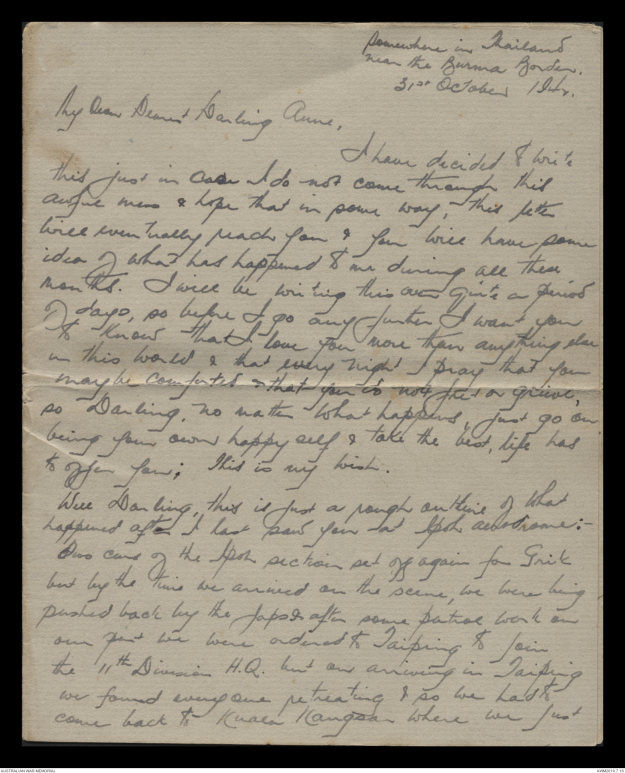 Somewhere in Thailand
near the Burma Border.
31st October 194
My Dear Dearest Darling Anne,
I have decided to write
this just in case I do not come through this
awful mess & hope that in some way, this letter
will eventually reach you & you will have some
idea of what has happened to me during all these
months. I will be writing this over quite a period
of days, so before I go any further I want you
to know that I love you more than anything else
in this world & that every night I pray that you
may be comforted & that you do not fret or grieve,
so Darling, no matter what happens, just go on
being your own happy self & take the best, life has
to offer you; this is my wish.
Well Darling, this is just a rough outline of what
happened after I last saw you at Ipoh aerodrome:-
Our cars of the Ipoh section set off again for Grik
but by the time we arrived on the scene, we were being
pushed back by the Japs & after some patrol work on
our part we were ordered to Taiping to join
the 11th Division H.Q. but on arriving in Taiping
we found everyone retreating & so we had to
come back to Kuala Kangsar where we just
AUSTRALIAN WAR MEMORIAL